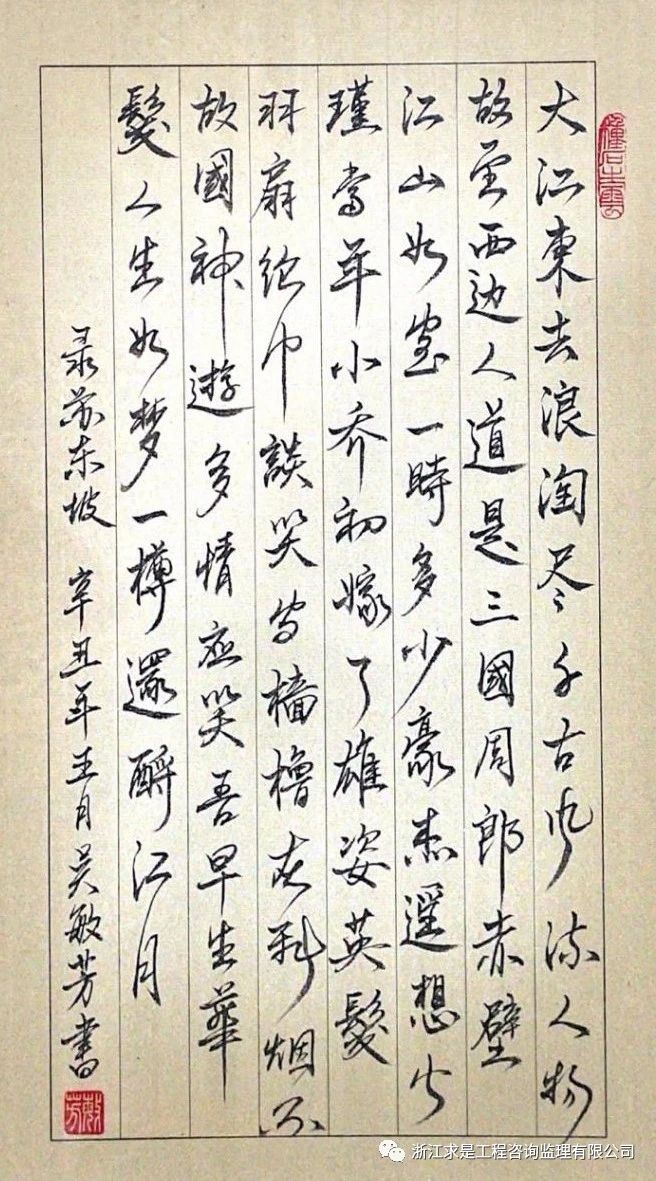 大江東去浪淘尽千古风流人物
故垒西边人道是三國周郎赤壁
江山如畫一時多少豪杰遥想公
瑾當年小乔初嫁了雄姿英髮
羽扇纶巾談笑间檣櫓灰飞烟灭
故國神遊多情应笑吾早生華
髮人生如梦一樽還酹江月
录苏东坡 辛丑年五月吴敏芳書
敏芳
浙江求是工程咨询监理有限公司